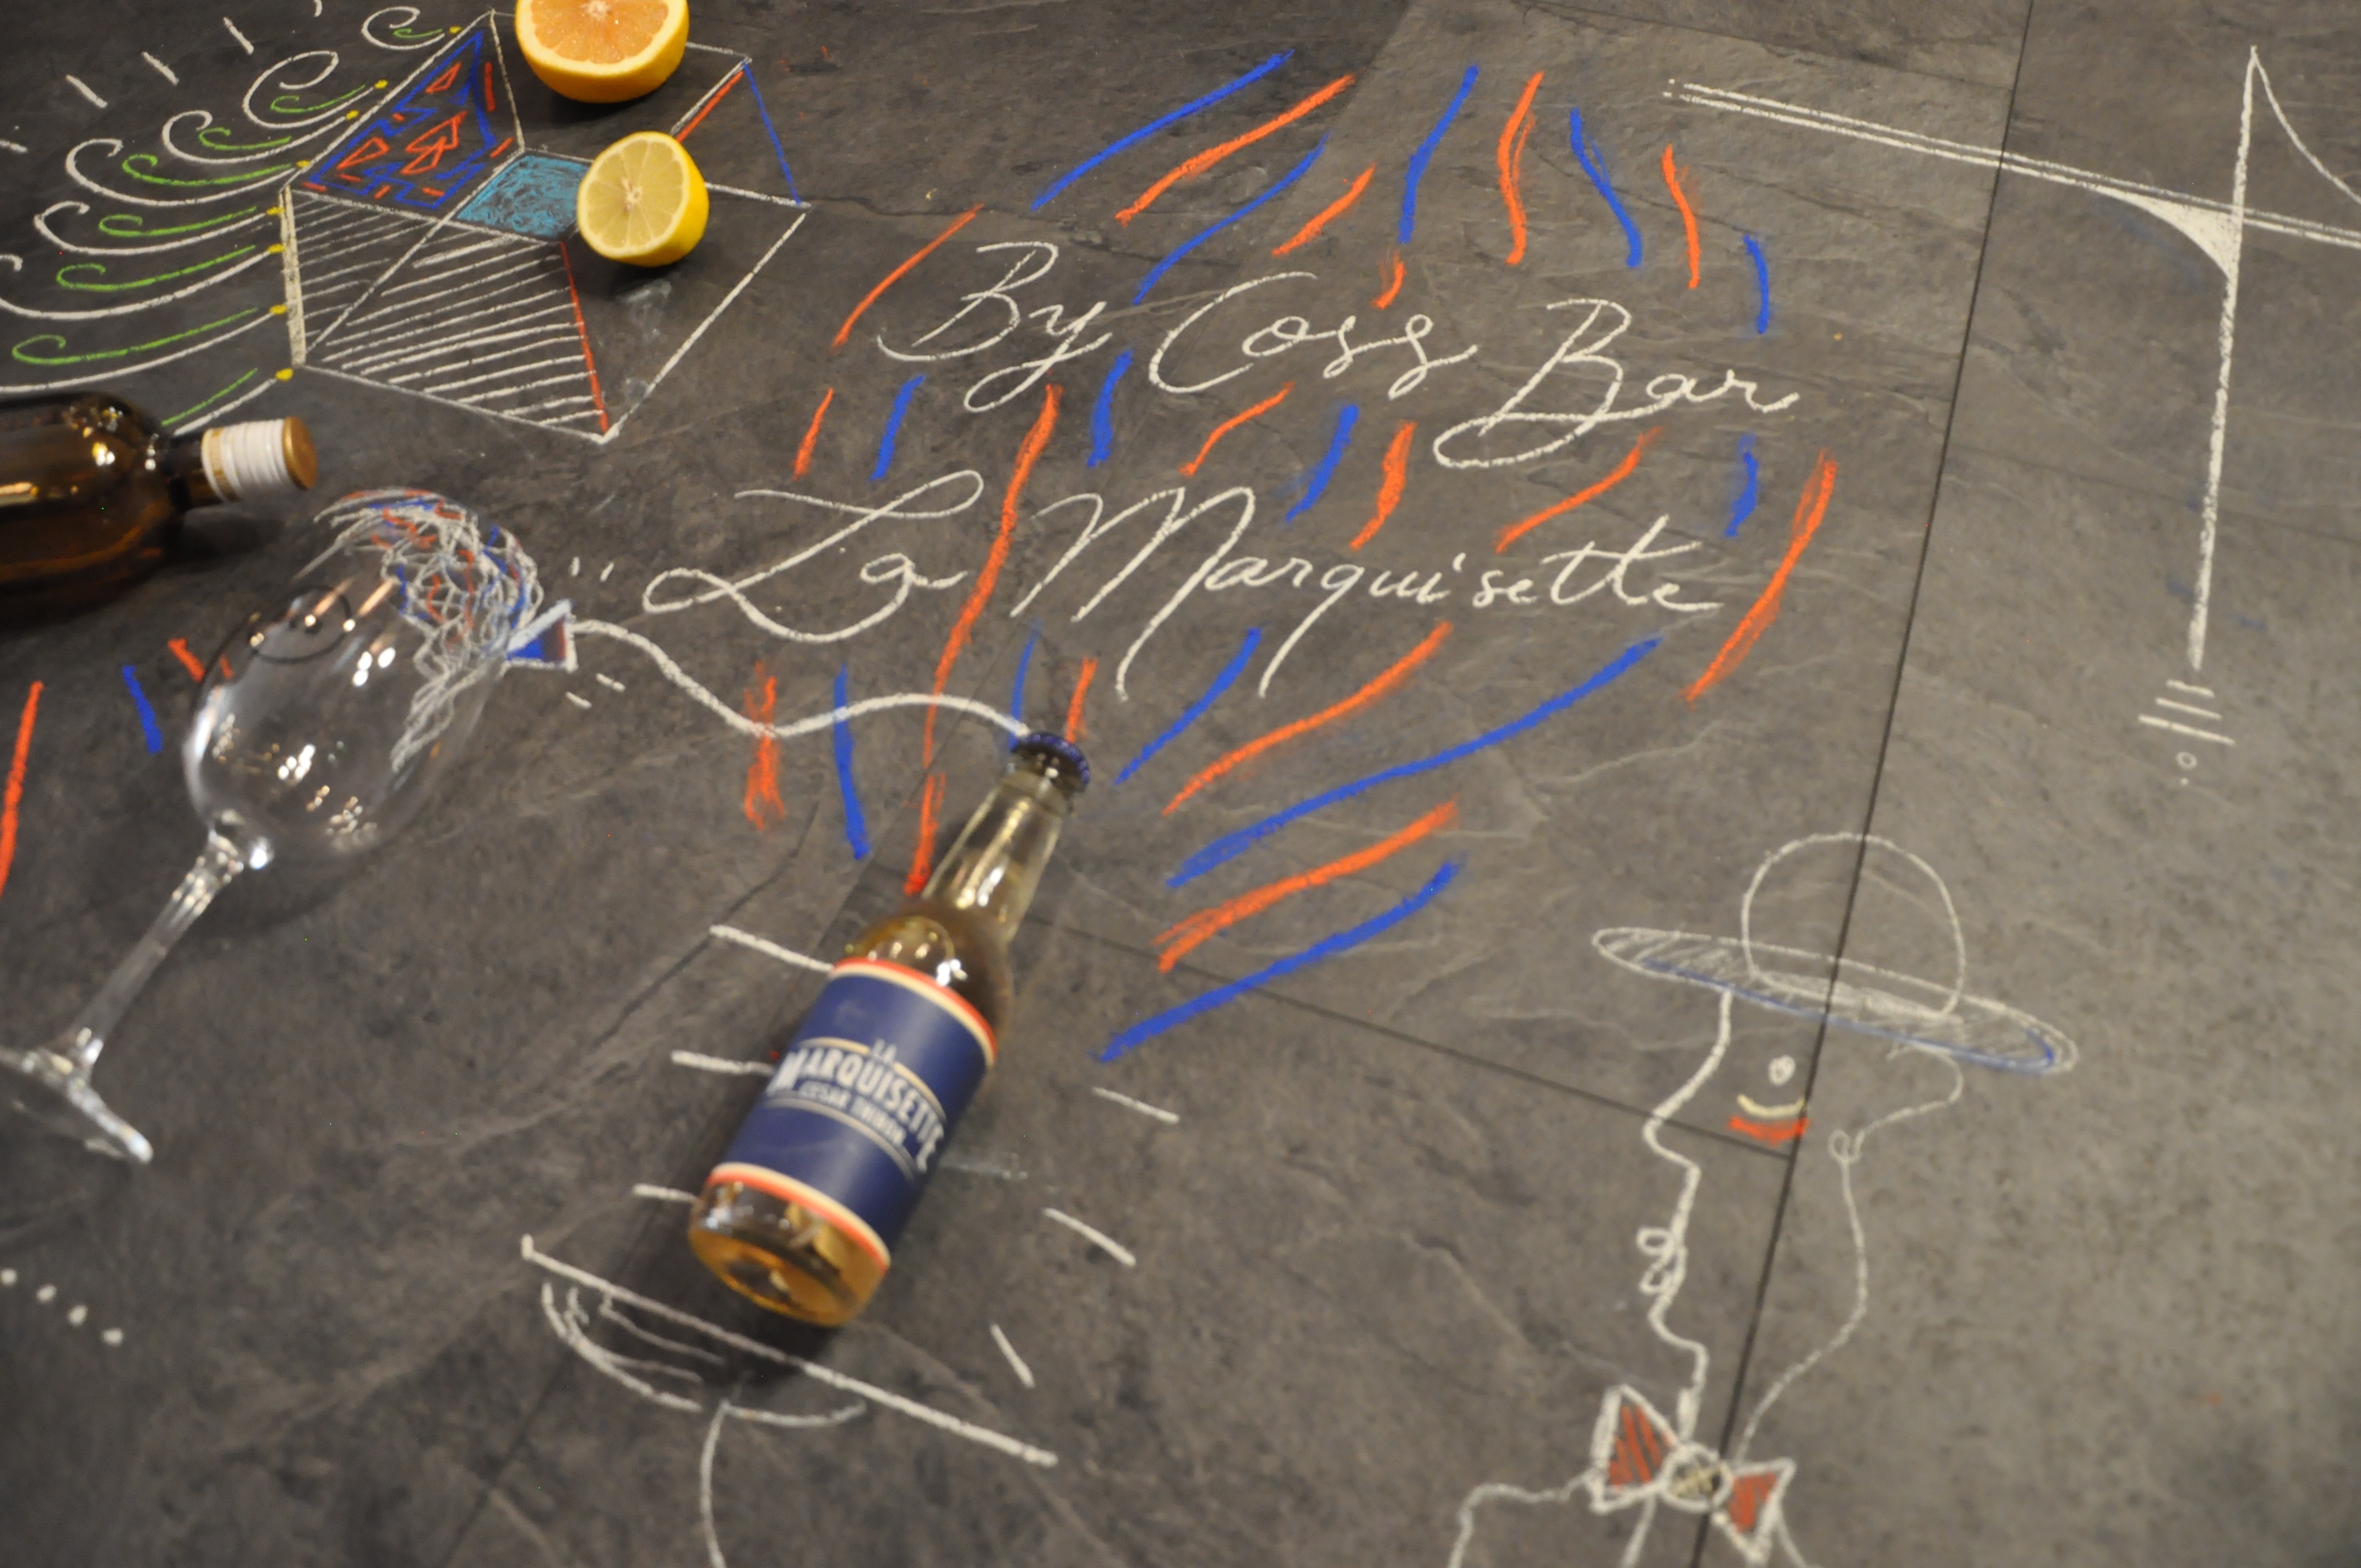 By Coss Bar
La Marquisette
LA
MARQUISETTE
CÉSAR THIBON